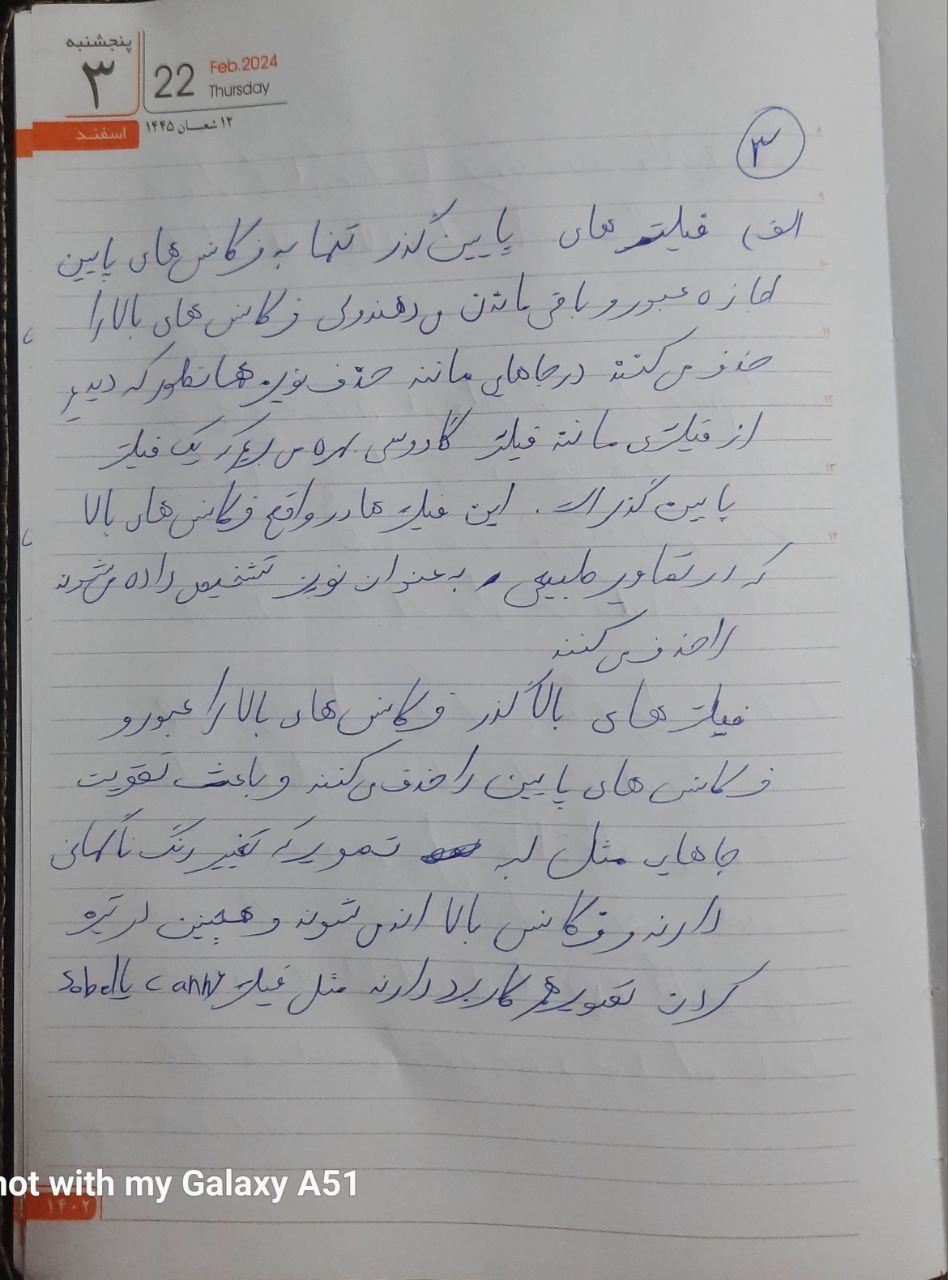 پنجشنبه
۳
22
Feb.2024
Thursday
اسفند
۱۲ شعبان ۱۴۴۵
۳
الف) فیلتر های پایین گذر تنها به فرکانس های پایین
اجازه عبور و باقی ماندن می دهند ولی فرکانس های بالا را
حذف می کنند در جاهای مانند حذف نویز همانطور که دیدیم
از فیلتری مانند فیلتر گاوسی بهره می بریم که یک فیلتر
پایین گذر است. این فیلتر ها در واقع فرکانس های بالا
که در تصاویر طبیعی به عنوان نویز تشخیص داده می شوند
را حذف می کنند
فیلتر های بالا گذر فرکانس های بالا را عبور و
فرکانس های پایین را حذف می کنند و باعث تقویت
جاهای مثل لبه تصویر که تغییر رنگ ناگهانی
دارند و فرکانس بالا اند می شوند و همچنین در تیزه
کردن تصویر هم کاربرد دارند مثل فیلتر Canny یا Sobel
not with my Galaxy A51
۱۴۰۲